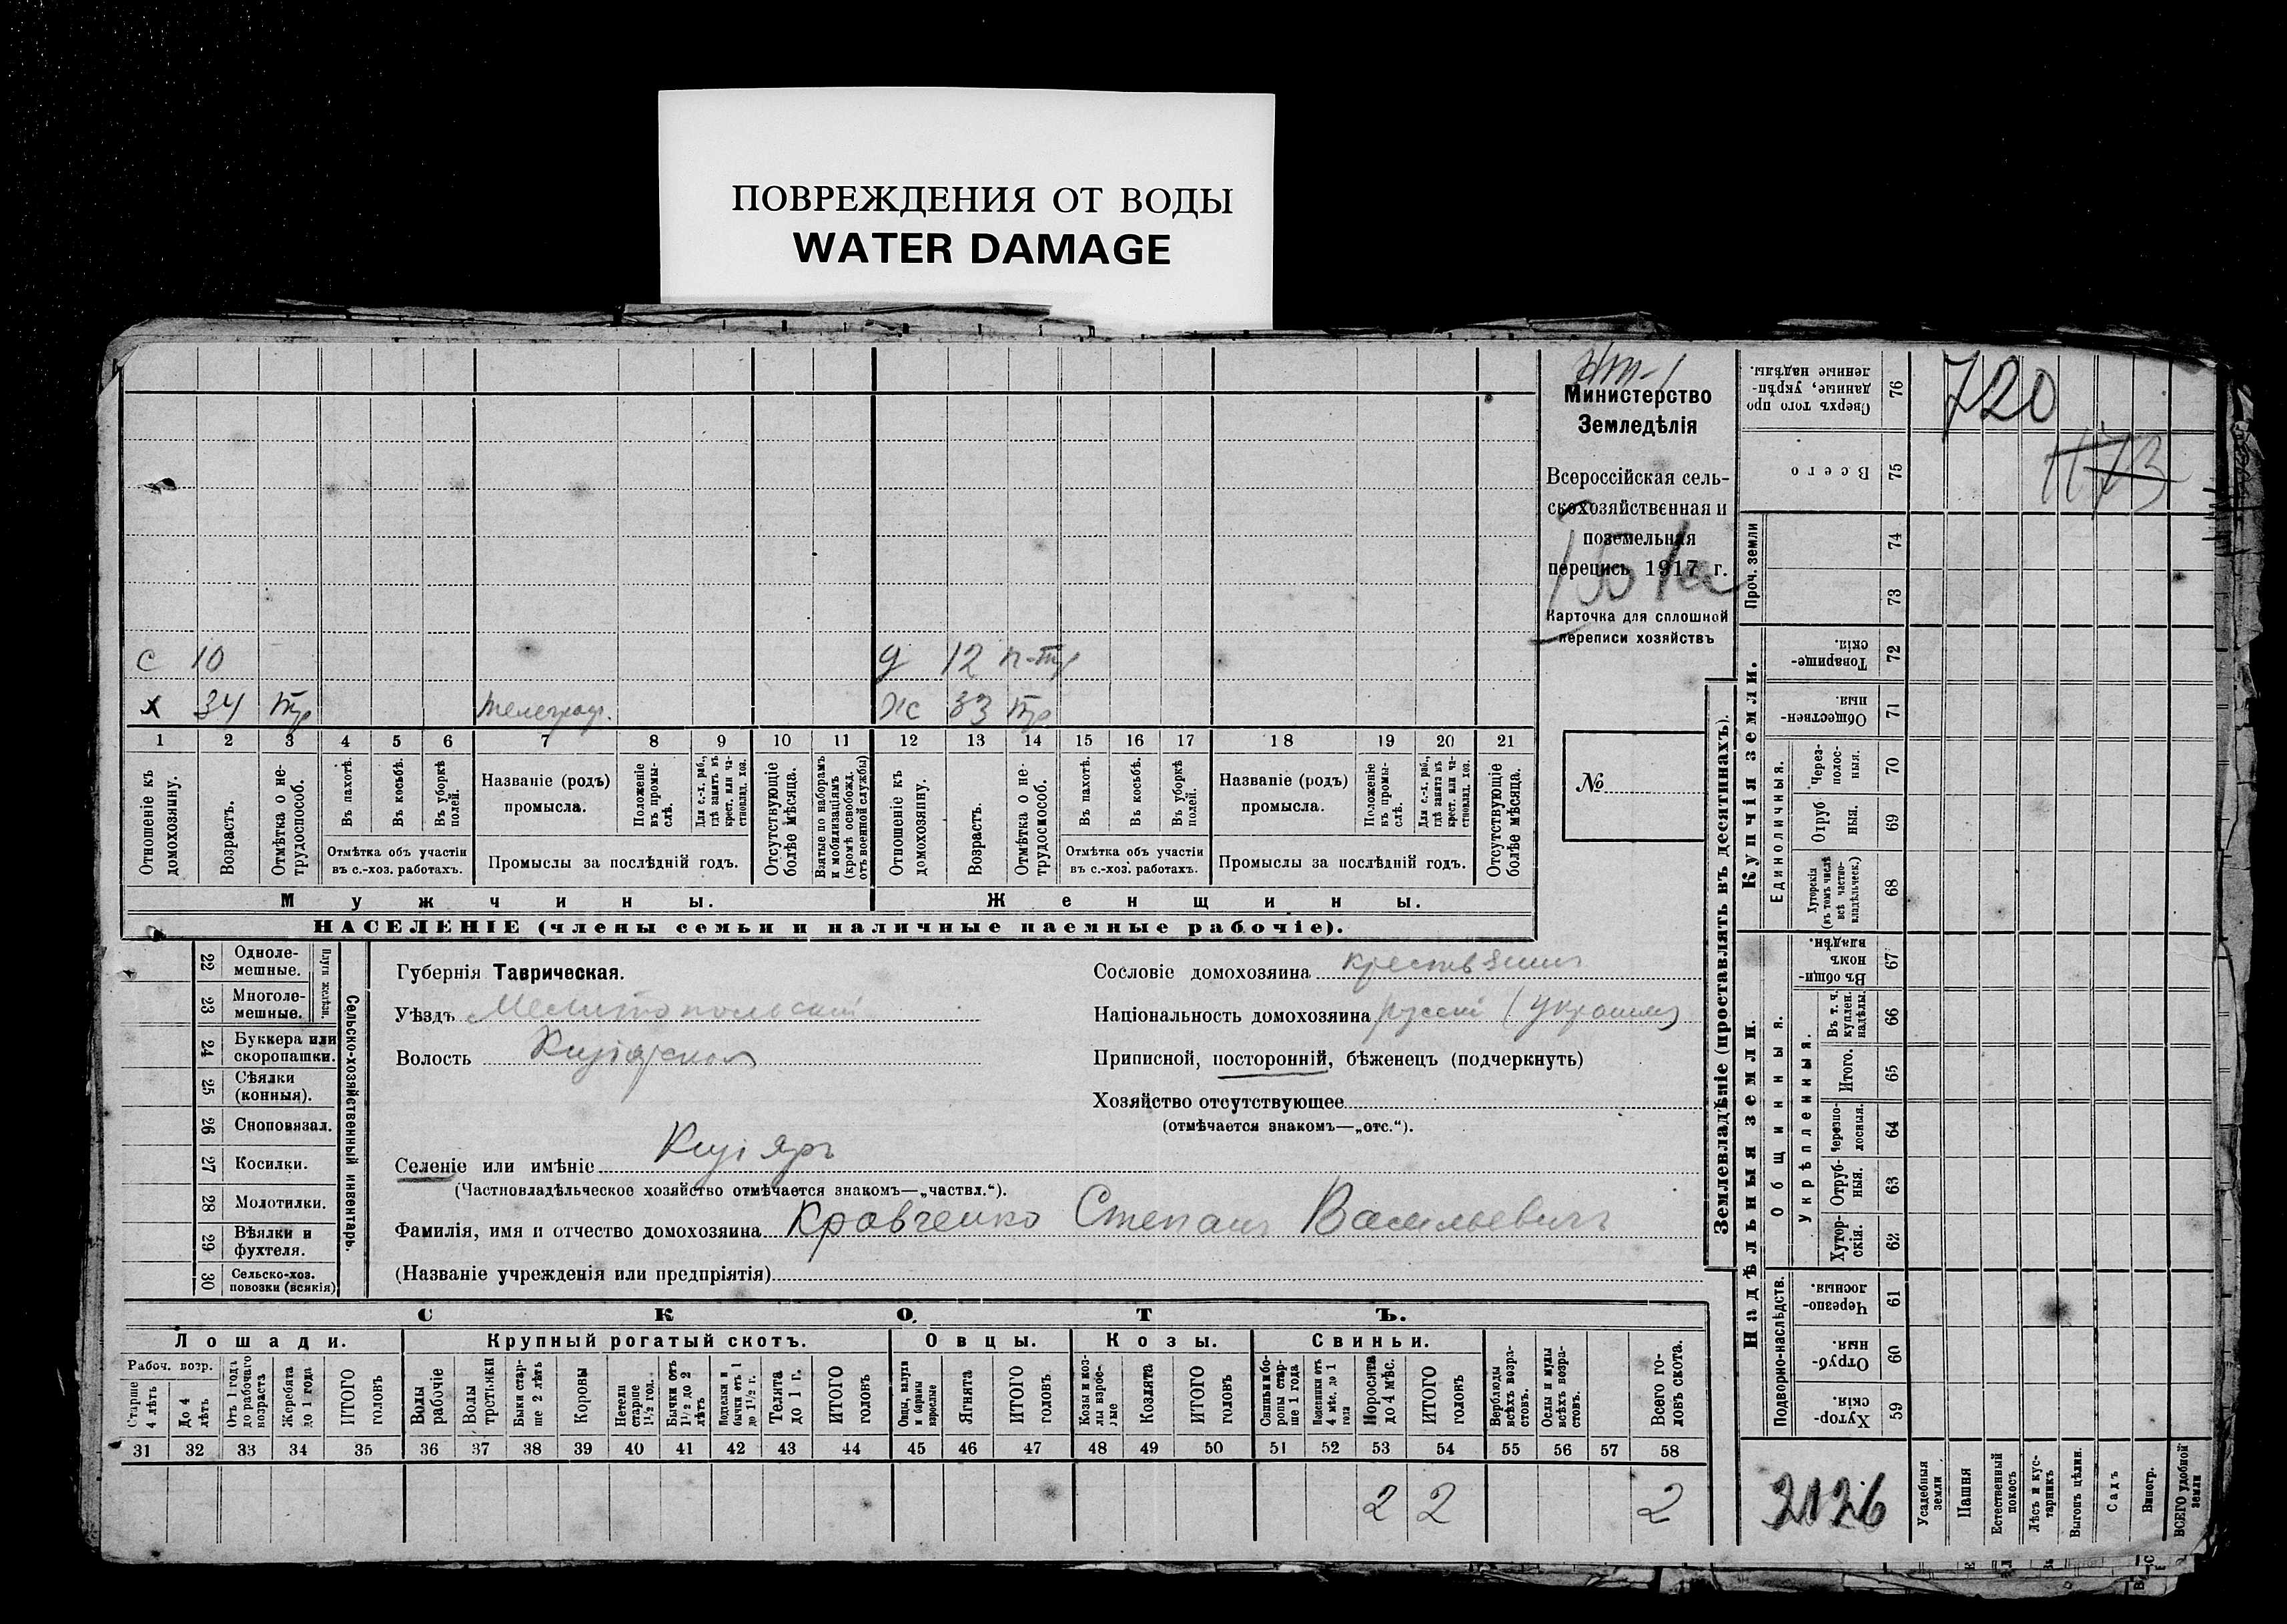 ПОВРЕЖДЕНИЯ ОТ ВОДЫ
WATER DAMAGE
Министерство
Земледѣлія
Всероссійская сель-
скохозяйственная и
поземельная
перепись 1917 г.
Карточка для сплошной
переписи хозяйствъ
№
с 10
д 12 п-тр
х 34 тр телеграф.
ж 33 тр
1 2 3 4 5 6 7 8 9 10 11 12 13 14 15 16 17 18 19 20 21
Отношеніе къ домохозяину.
Возрастъ.
Отмѣтка о не-трудоспособ.
Въ пахотѣ.
Въ косьбѣ.
Въ уборкѣ полей.
Отмѣтка объ участіи
въ с.-хоз. работахъ.
Названіе (родъ)
промысла.
Положеніе въ промы-слѣ.
Для с.-х. раб., гдѣ занятъ въ крест. или ча-ствовлад. хоз.
Промыслы за послѣдній годъ.
Отсутствующіе болѣе мѣсяца.
Взятые по наборамъ и мобилизаціямъ (кромѣ освобожд. отъ военной службы)
Отношеніе къ домохозяину.
Возрастъ.
Отмѣтка о не-трудоспособ.
Въ пахотѣ.
Въ косьбѣ.
Въ уборкѣ полей.
Отмѣтка объ участіи
въ с.-хоз. работахъ.
Названіе (родъ)
промысла.
Положеніе въ промы-слѣ.
Для с.-х. раб., гдѣ занята въ крест. или ча-ствовлад. хоз.
Промыслы за послѣдній годъ.
Отсутствующіе болѣе мѣсяца.
Мужчины.
Женщины.
НАСЕЛЕНІЕ (члены семьи и наличные наемные рабочіе).
22 Одноле-мешные.
23 Многоле-мешные.
Плуги желѣзн.
24 Буккера или скоропашки.
25 Сѣялки (конныя).
26 Сноповязал.
27 Косилки.
28 Молотилки.
29 Вѣялки и фухтеля.
30 Сельско-хоз. повозки (всякія)
Сельско-хозяйственный инвентарь.
Губернія Таврическая.
Уѣздъ Мелитопольскій
Волость Кизіярская
Селеніе или имѣніе Кизіяръ
(Частновладѣльческое хозяйство отмѣчается знакомъ—„частвл.“).
Фамилія, имя и отчество домохозяина Кравченко Степанъ Васильевичъ
(Названіе учрежденія или предпріятія)
Сословіе домохозяина крестьянинъ
Національность домохозяина русскі (украинец)
Приписной, посторонній, бѣженецъ (подчеркнуть)
Хозяйство отсутствующее
(отмѣчается знакомъ—„отс.“).
СКОТЪ.
Лошади.
Крупный рогатый скотъ.
Овцы.
Козы.
Свиньи.
Рабоч. возр.
Старше 4 лѣтъ
До 4 лѣтъ
Отъ 1 года до рабочаго возраста
Жеребята до 1 года
ИТОГО головъ
Волы рабочіе
Волы третьяки
Быки стар-ше 2 лѣтъ
Коровы
Нетели старше 1½ год.
Бычки отъ 1½ до 2 лѣтъ
Подтелки и бычки отъ 1 до 1½ г.
Телята до 1 г.
ИТОГО головъ
Овцы, валухи и бараны взрослые
Ягнята
ИТОГО головъ.
Козы и коз-лы взрос-лые
Козлята
ИТОГО головъ
Свиньи и бо-ровы стар-ше 1 года
Подсвинки отъ 4 мѣс. до 1 года
Поросята до 4 мѣс.
ИТОГО головъ
Верблюды всѣхъ возра-стовъ.
Ослы и мулы всѣхъ возра-стовъ.
Всего го-ловъ скота.
31 32 33 34 35 36 37 38 39 40 41 42 43 44 45 46 47 48 49 50 51 52 53 54 55 56 57 58
2 2 2
Землевладѣніе (проставлять въ десятинахъ).
720
1173
Сверхъ того про-даннные, укрѣп-ленные надѣлы. 76
Всего 75
Проч. земли
74
73
Купчія земли.
Товарище-скія. 72
Обществен-ныя 71
Единоличныя.
Через-полос-ныя. 70
Отруб-ныя. 69
Хуторскія (въ томъ числѣ всѣ частно-владѣльческ.) 68
Надѣльныя земли.
Общинныя.
Въ общи-номъ владѣн. 67
Укрѣпленныя.
Въ т. ч. куплен. надѣлы. 66
Итого. 65
Черезпо-лосныя. 64
Отруб-ныя. 63
Хутор-скія. 62
Подворно-наслѣдств.
Черезпо-лосныя. 61
Отруб-ныя. 60
Хутор-скія. 59
2126
Усадебныя земли
Пашня
Естественный покосъ
Лѣсъ и кус-тарникъ
Выгонъ цѣлин.
Садъ
Виногр.
ВСЕГО удобной земли